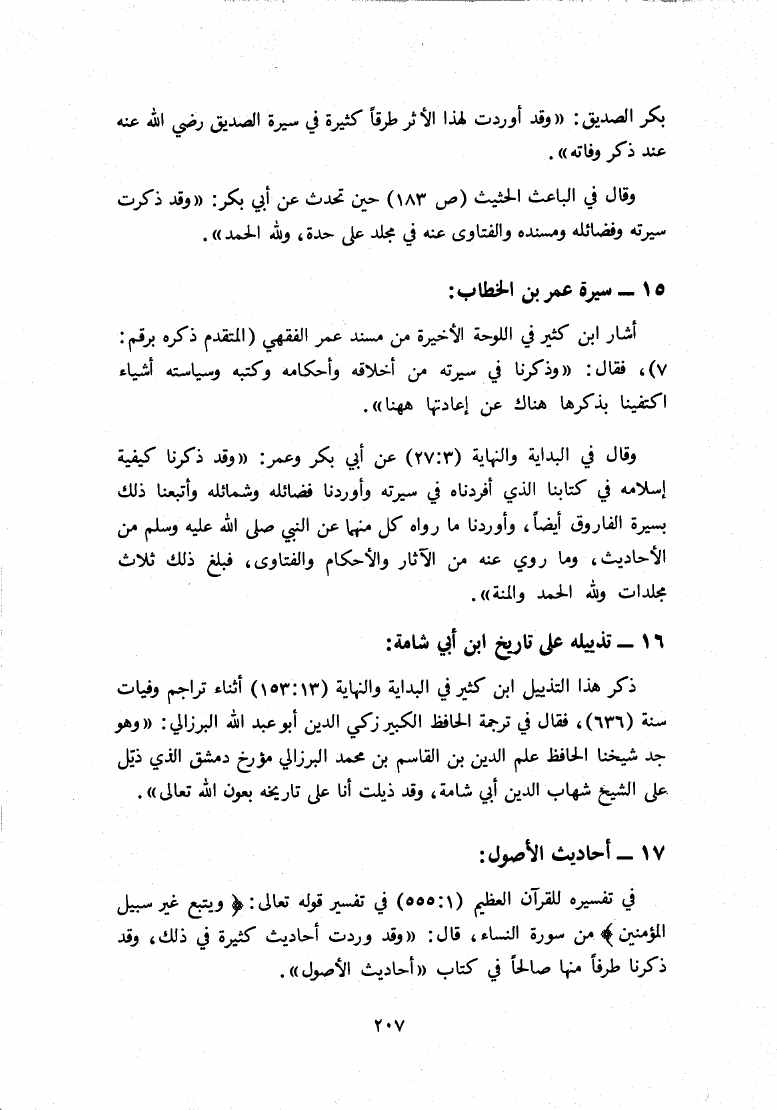 بكر الصديق: «وقد أوردت لهذا الأثر طرقاً كثيرة في سيرة الصديق رضي الله عنه
عند ذكر وفاته».
وقال في الباعث الحثيث (ص ١٨٣) حين تحدث عن أبي بكر: «وقد ذكرت
سيرته وفضائله ومسنده والفتاوى عنه في مجلد على حدة، ولله الحمد».
١٥ ـ سيرة عمر بن الخطاب:
أشار ابن كثير في اللوحة الأخيرة من مسند عمر الفقهي (المتقدم ذكره برقم:
٧)، فقال: «وذكرنا في سيرته من أخلاقه وأحكامه وكتبه وسياسته أشياء
اكتفينا بذكرها هناك عن إعادتها ههنا».
وقال في البداية والنهاية (٢٧:٣) عن أبي بكر وعمر: «وقد ذكرنا كيفية
إسلامه في كتابنا الذي أفردناه في سيرته وأوردنا فضائله وشمائله وأتبعنا ذلك
بسيرة الفاروق أيضاً، وأوردنا ما رواه كل منهما عن النبي صلى الله عليه وسلم من
الأحاديث، وما روي عنه من الآثار والأحكام والفتاوى، فبلغ ذلك ثلاث
مجلدات ولله الحمد والمنة».
١٦ ـ تذييله على تاريخ ابن أبي شامة:
ذكر هذا التذييل ابن كثير في البداية والنهاية (١٥٣:١٣) أثناء تراجم وفيات
سنة (٦٣٦)، فقال في ترجمة الحافظ الكبير زكي الدين أبو عبد الله البرزالي: «وهو
جد شيخنا الحافظ علم الدين بن القاسم بن محمد البرزالي مؤرخ دمشق الذي ذيّل
على الشيخ شهاب الدين أبي شامة، وقد ذيلت أنا على تاريخه بعون الله تعالى».
١٧ ـ أحاديث الأصول:
في تفسيره للقرآن العظيم (٥٥٥:١) في تفسير قوله تعالى: ﴿ ويتبع غير سبيل
المؤمنين ﴾ من سورة النساء، قال: «وقد وردت أحاديث كثيرة في ذلك، وقد
ذكرنا طرفاً منها صالحاً في كتاب «أحاديث الأصول».
٢٠٧